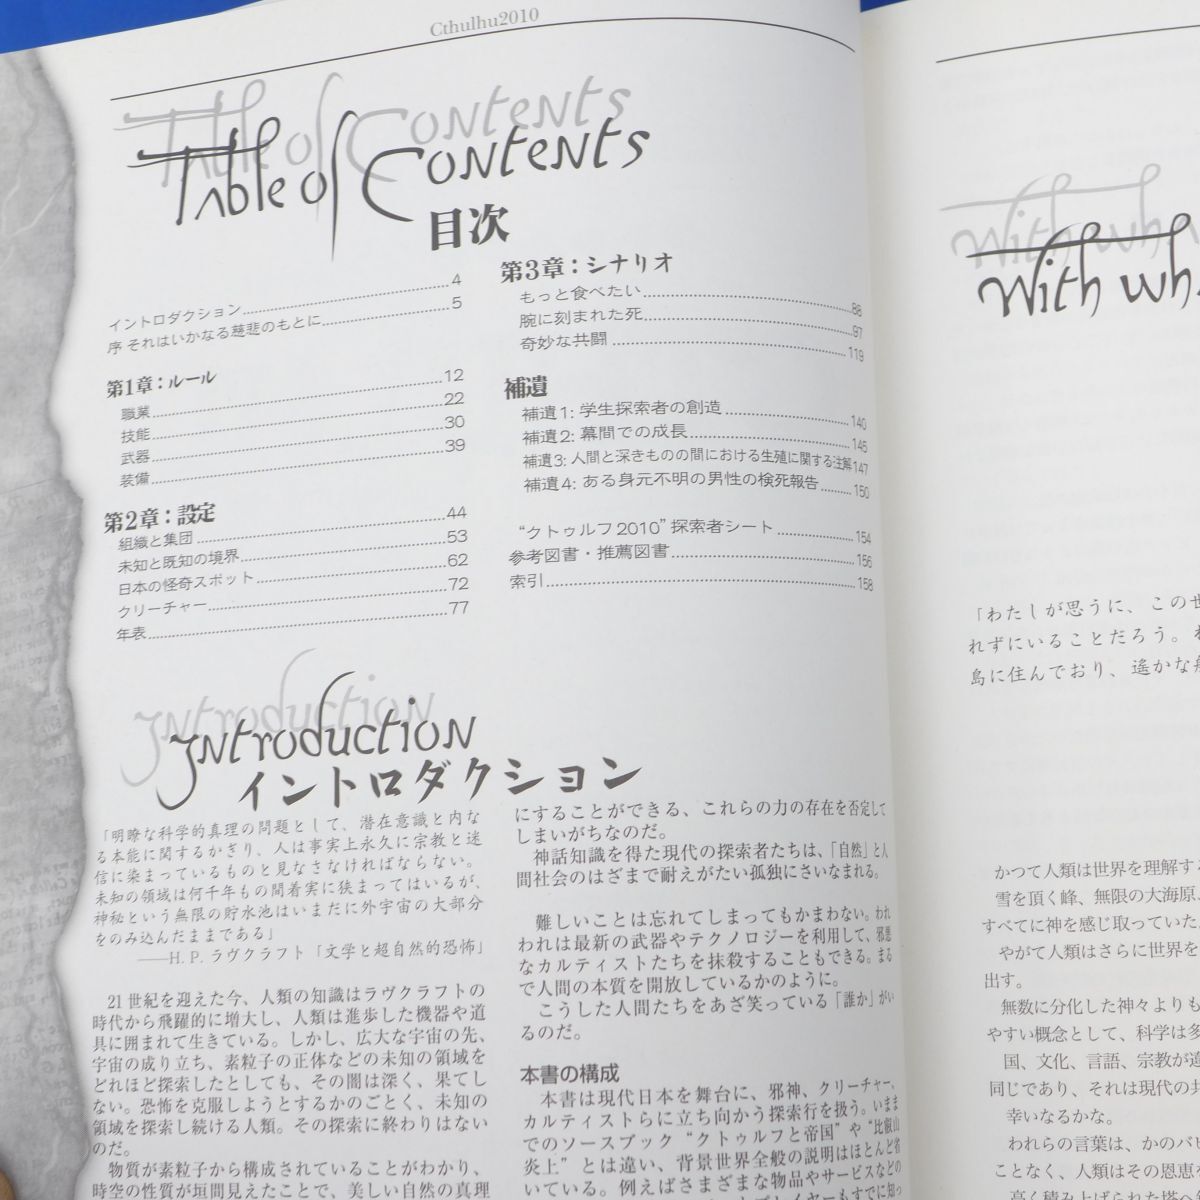 Cthulhu2010
Table of Contents
目次
イントロダクション 4
序 それはいかなる慈悲のもとに 5
第1章：ルール
職業 12
技能 22
武器 30
装備 39
第2章：設定
組織と集団 44
未知と既知の境界 53
日本の怪奇スポット 62
クリーチャー 72
年表 77
第3章：シナリオ
もっと食べたい 88
腕に刻まれた死 97
奇妙な共闘 119
補遺
補遺1: 学生探索者の創造 140
補遺2: 幕間での成長 145
補遺3: 人間と深きものの間における生殖に関する注解 147
補遺4: ある身元不明の男性の検死報告 150
“クトゥルフ2010”探索者シート 154
参考図書・推薦図書 156
索引 158
Introduction
イントロダクション
「明瞭な科学的真理の問題として、潜在意識と内な
る本能に関するかぎり、人は事実上永久に宗教と迷
信に染まっているものと見なさなければならない。
未知の領域は何千年もの間着実に狭まってはいるが、
神秘という無限の貯水池はいまだに外宇宙の大部分
をのみ込んだままである」
──H. P. ラヴクラフト「文学と超自然的恐怖」
21世紀を迎えた今、人類の知識はラヴクラフトの
時代から飛躍的に増大し、人類は進歩した機器や道
具に囲まれて生きている。しかし、広大な宇宙の先、
宇宙の成り立ち、素粒子の正体などの未知の領域を
どれほど探索したとしても、その闇は深く、果てし
ない。恐怖を克服しようとするかのごとく、未知の
領域を探索し続ける人類。その探索に終わりはない
のだ。
物質が素粒子から構成されていることがわかり、
時空の性質が垣間見えたことで、美しい自然の真理
にすることができる、これらの力の存在を否定して
しまいがちなのだ。
神話知識を得た現代の探索者たちは、「自然」と人
間社会のはざまで耐えがたい孤独にさいなまれる。
難しいことは忘れてしまってもかまわない。われ
われは最新の武器やテクノロジーを利用して、邪悪
なカルティストたちを抹殺することもできる。まる
で人間の本質を開放しているかのように。
こうした人間たちをあざ笑っている「誰か」がい
るのだ。
本書の構成
本書は現代日本を舞台に、邪神、クリーチャー、
カルティストらに立ち向かう探索行を扱う。いまま
でのソースブック“クトゥルフと帝国”や“比叡山
炎上”とは違い、背景世界全般の説明はほとんど省
いている。例えばさまざまな物品やサービスなどの
プレイヤーもすでに知っ
With wh
「わたしが思うに、この世
れずにいることだろう。
島に住んでおり、遙かな
かつて人類は世界を理解する
雪を頂く峰、無限の大海原、
すべてに神を感じ取っていた。
やがて人類はさらに世界を
出す。
無数に分化した神々よりも
やすい概念として、科学は多
国、文化、言語、宗教が違
同じであり、それは現代の共
幸いなるかな。
われらの言葉は、かのバビ
ことなく、人類はその恩恵を
高く積み上げられた塔